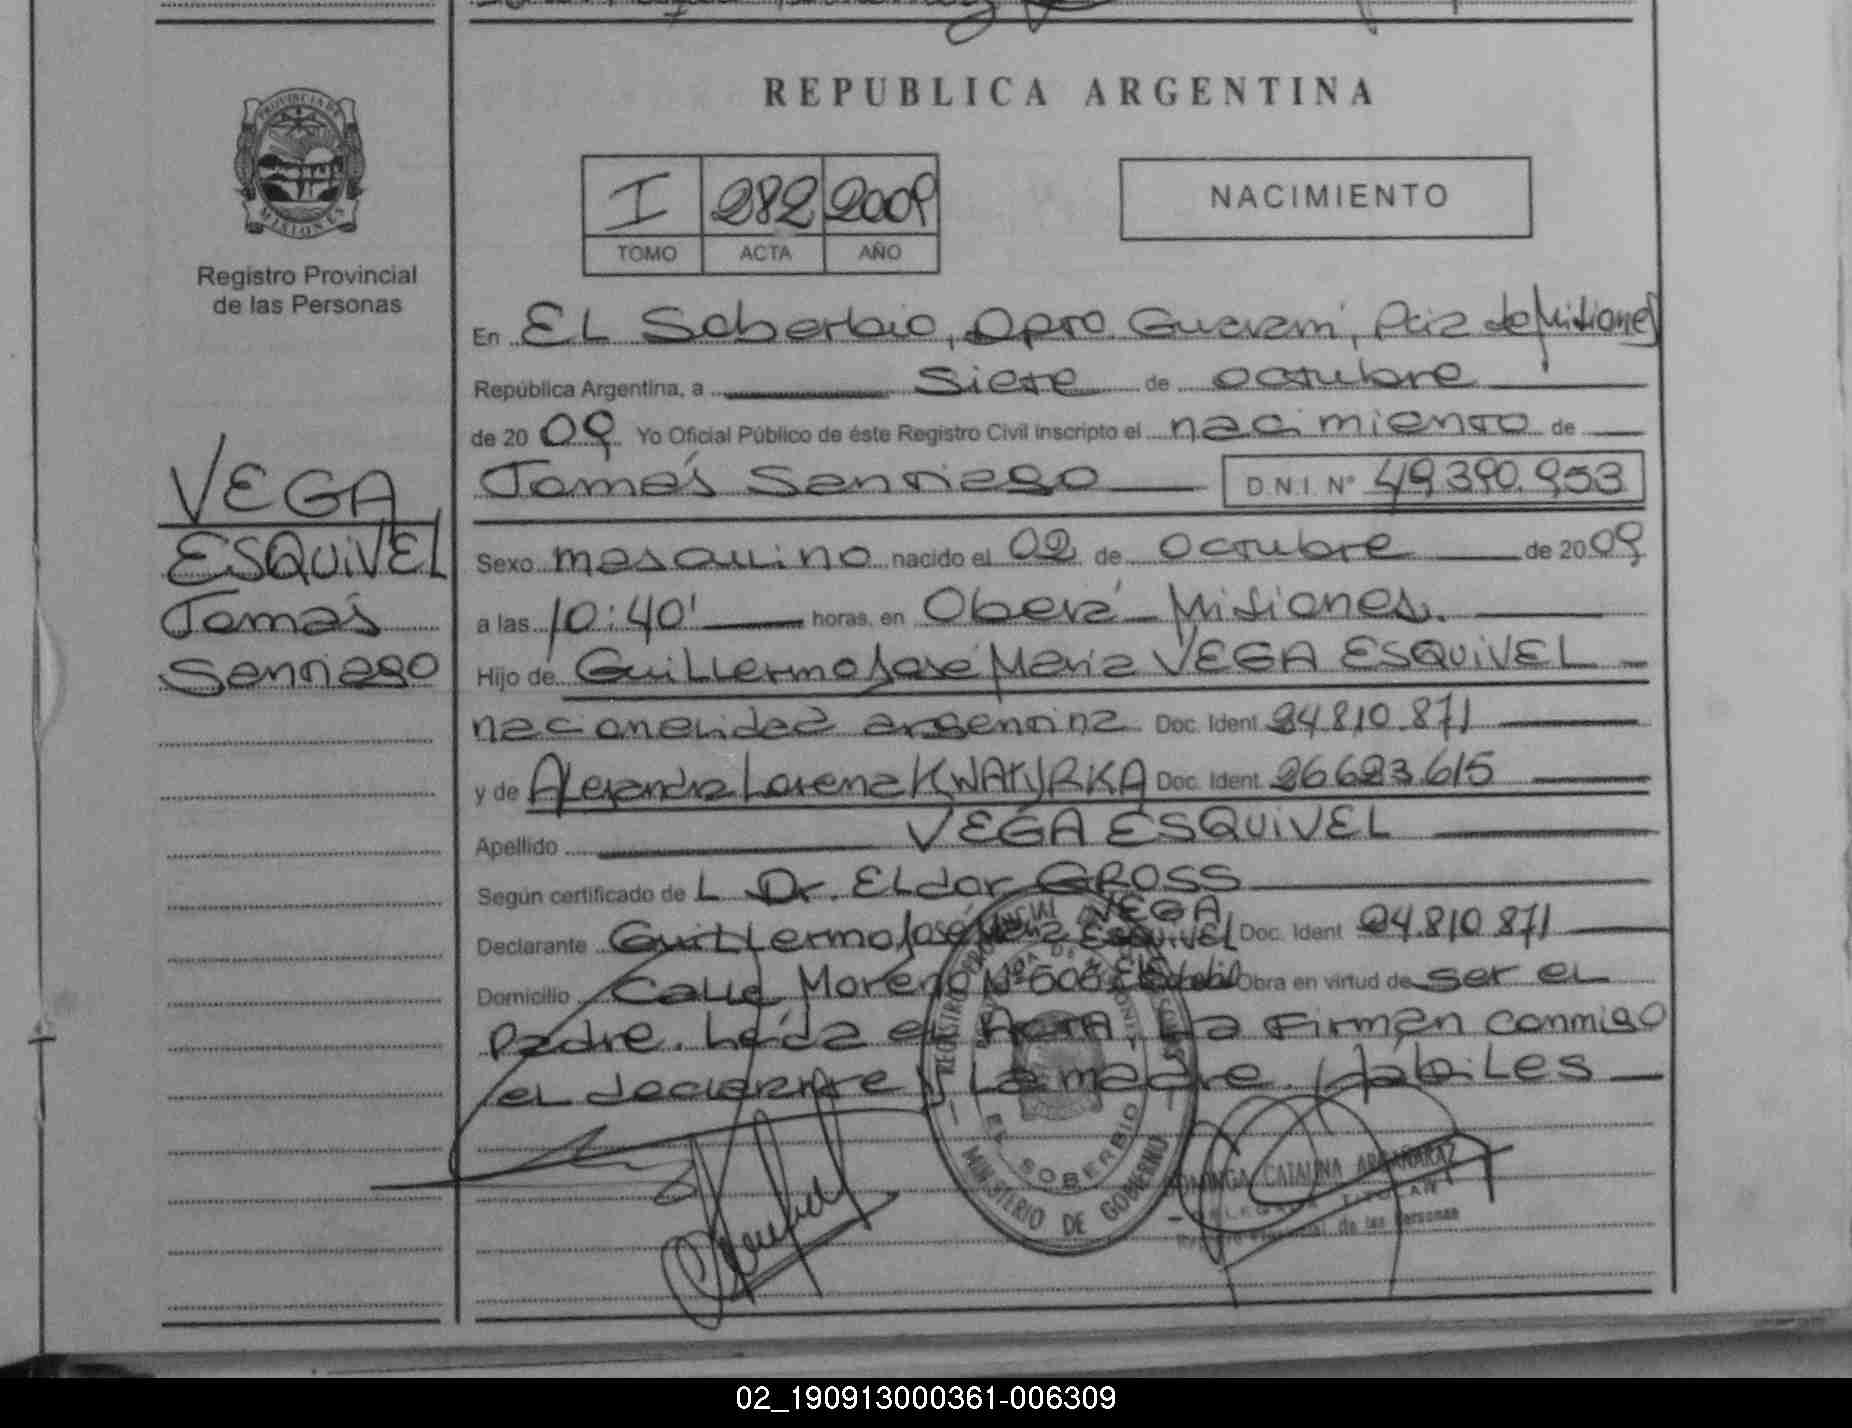 REPUBLICA ARGENTINA
PROVINCIA DE
MISIONES
Registro Provincial
de las Personas
I 282 2009
TOMO ACTA AÑO
NACIMIENTO
En EL Soberbio, Dpto. Guaraní, Pcia de Misiones
República Argentina, a siete de octubre
de 2009 Yo Oficial Público de éste Registro Civil inscripto el nacimiento de
Tomás Santiago D.N.I. N° 49.390.953
VEGA
ESQUIVEL
Tomás
Santiago
Sexo masculino nacido el 02 de octubre de 2009
a las 10:40' horas, en Oberá Misiones.
Hijo de Guillermo José María VEGA ESQUIVEL
nacionalidad argentina Doc. Ident. 24.810.871
y de Alejandra Lorena KWATYRKA Doc. Ident. 26.623.615
Apellido VEGA ESQUIVEL
Según certificado de L Dr. Eldor GROSS
Declarante Guillermo José María VEGA ESQUIVEL Doc. Ident. 24.810.871
Domicilio Calle Moreno N° 606 Obra en virtud de ser el
Padre. Leída el Acta La Firman conmigo
el declarante y La madre. Hábiles
EL SOBERBIO
MINISTERIO DE GOBIERNO
DOMINGA CATALINA ARGAÑARAZ
TITULAR
de las Personas
02_190913000361-006309